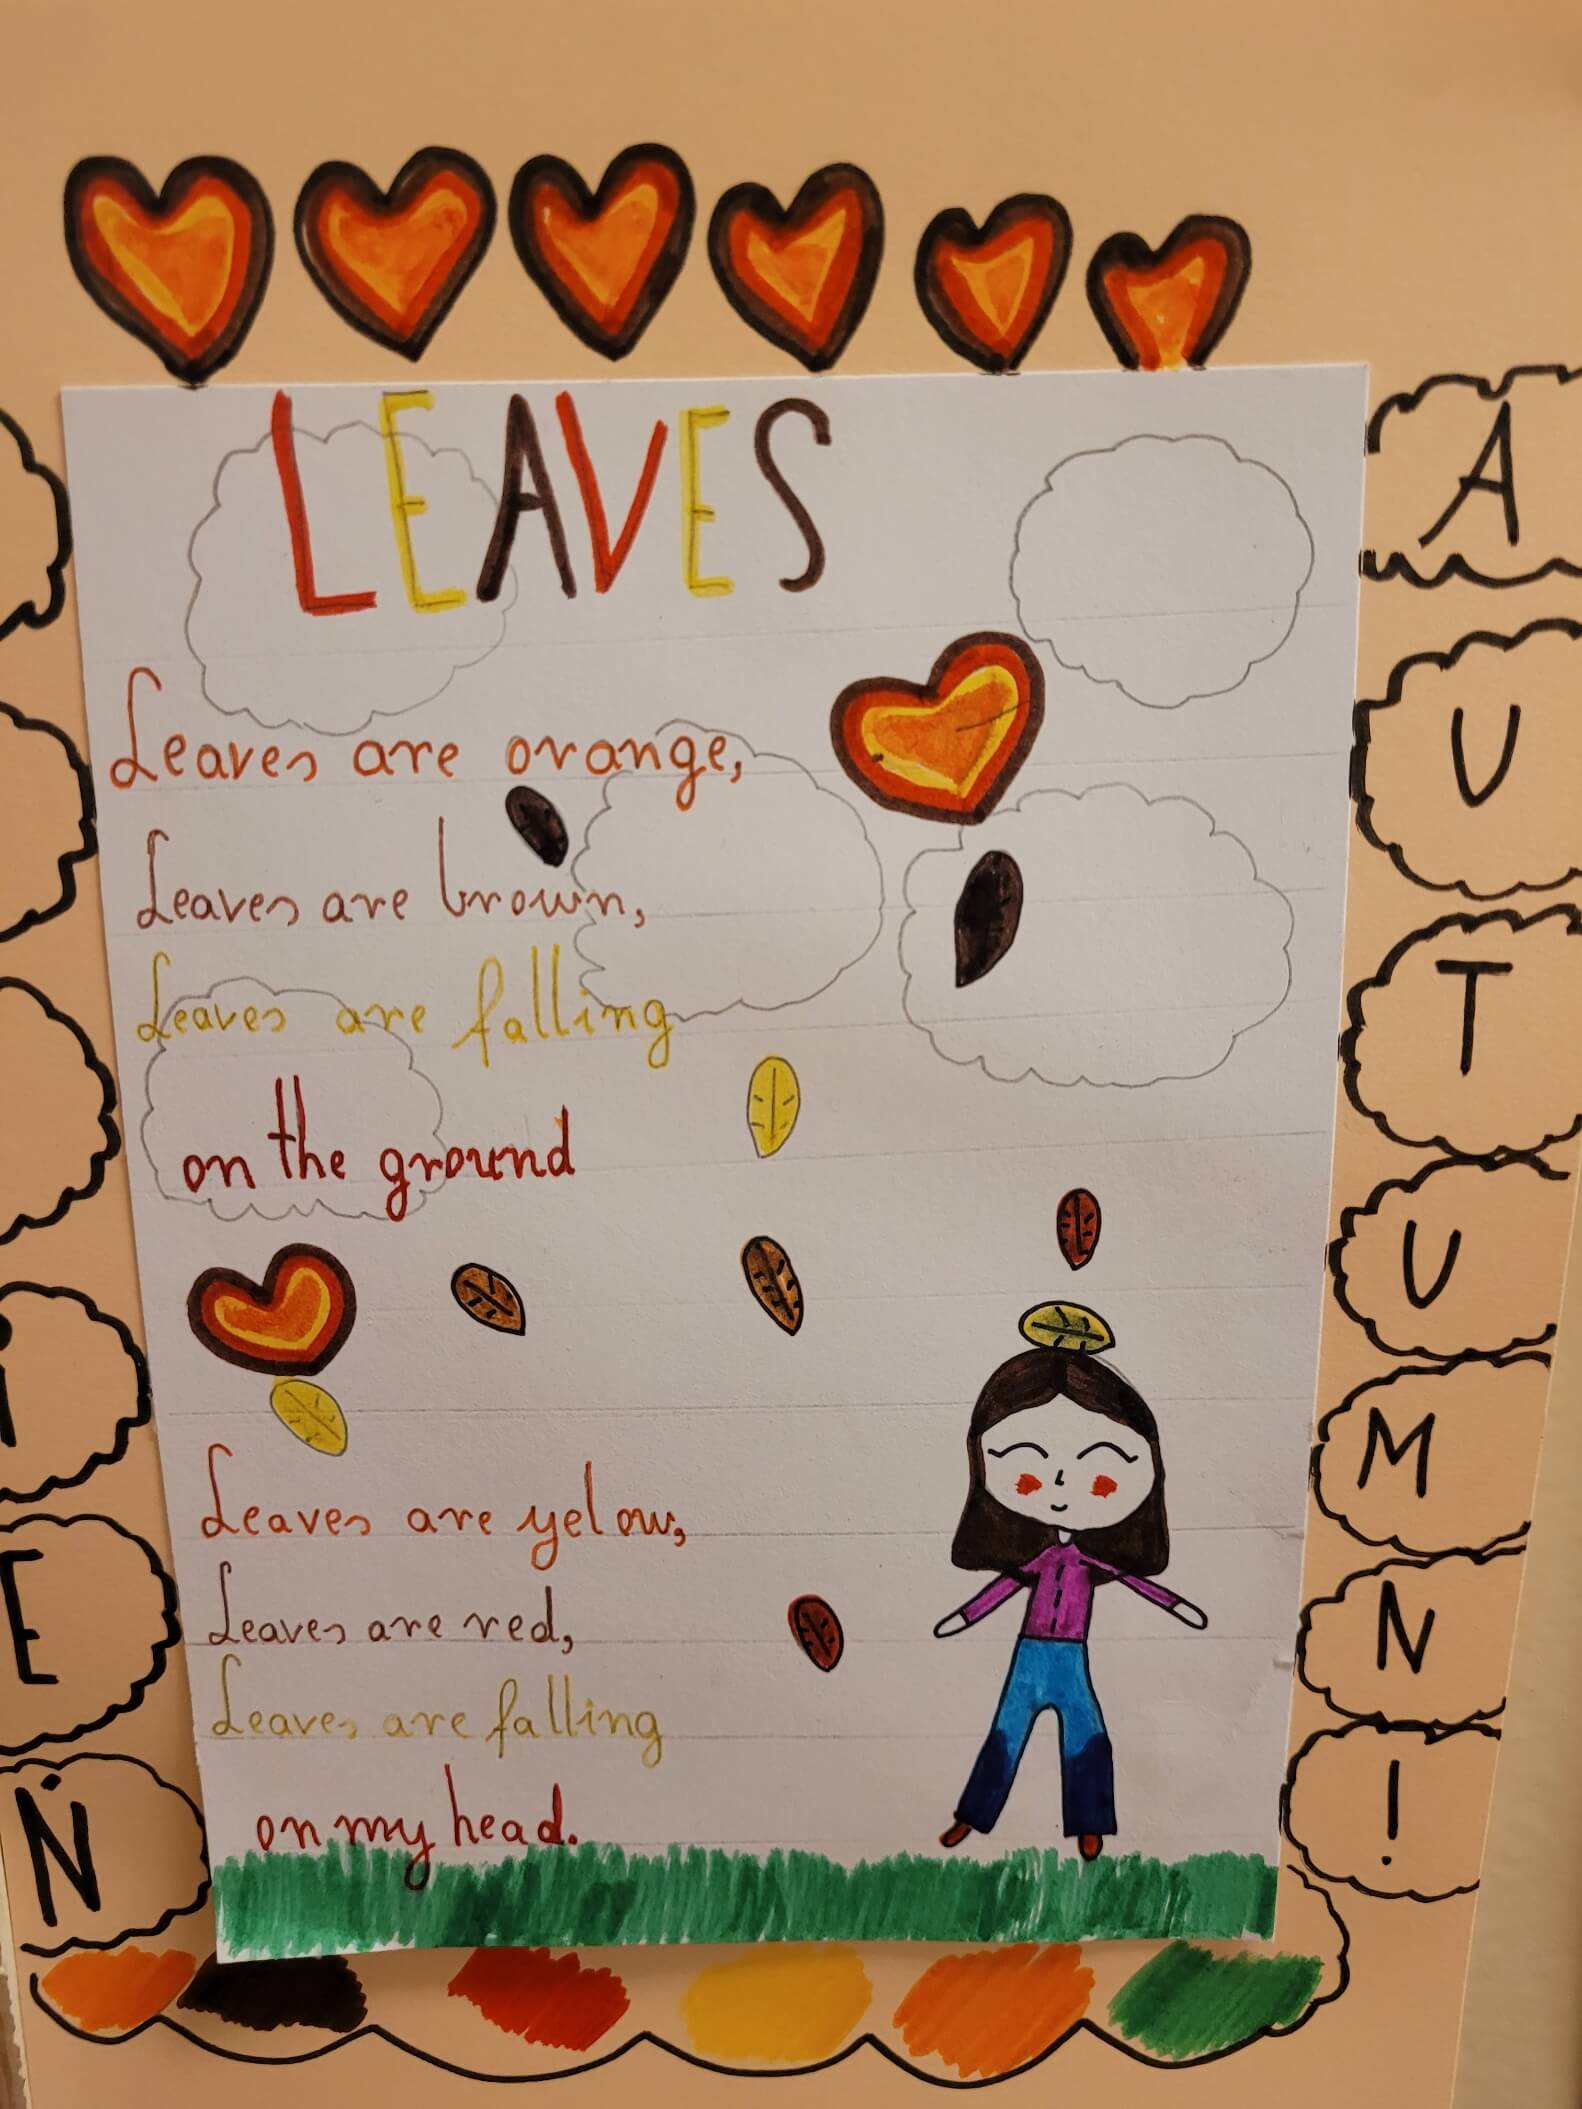 LEAVES
Leaves are orange,
Leaves are brown,
Leaves are falling
on the ground
Leaves are yelow,
Leaves are red,
Leaves are falling
on my head.
E
Ṅ
A
U
T
U
M
N
!